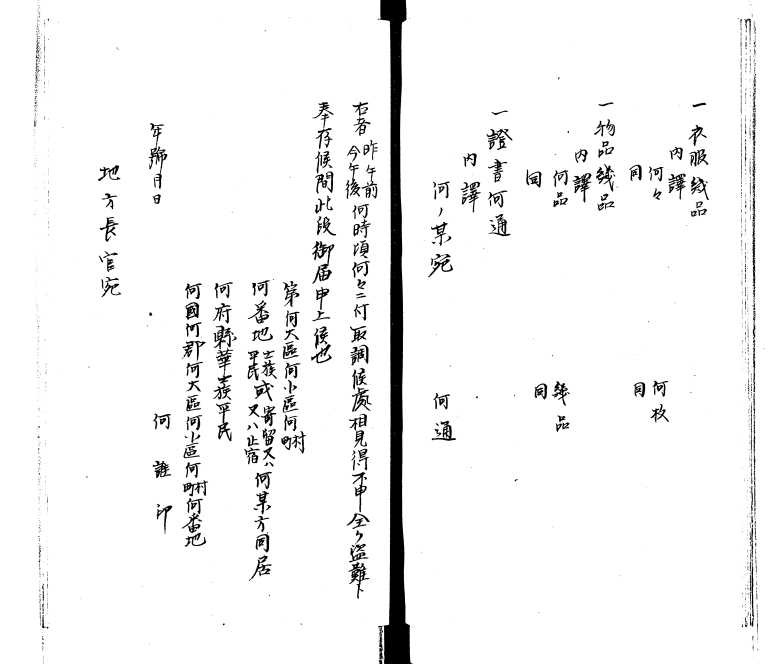 一衣服幾品
内譯
何々　何枚
同　同
一物品幾品
内譯
何品　幾品
同　同
一證書何通
内譯
何ノ某宛　何通
右者昨午前今午後何時頃何々ニ付取調候處相見得不申全ク盗難ト
奉存候間此段御届申上候也
第何大區何小區何村町
何番地士族平民或寄留又ハ又ハ止宿何某方同居
何府縣華士族平民
何國何郡何大區何小區何村町何番地
何誰印
年號月日
地方長官宛